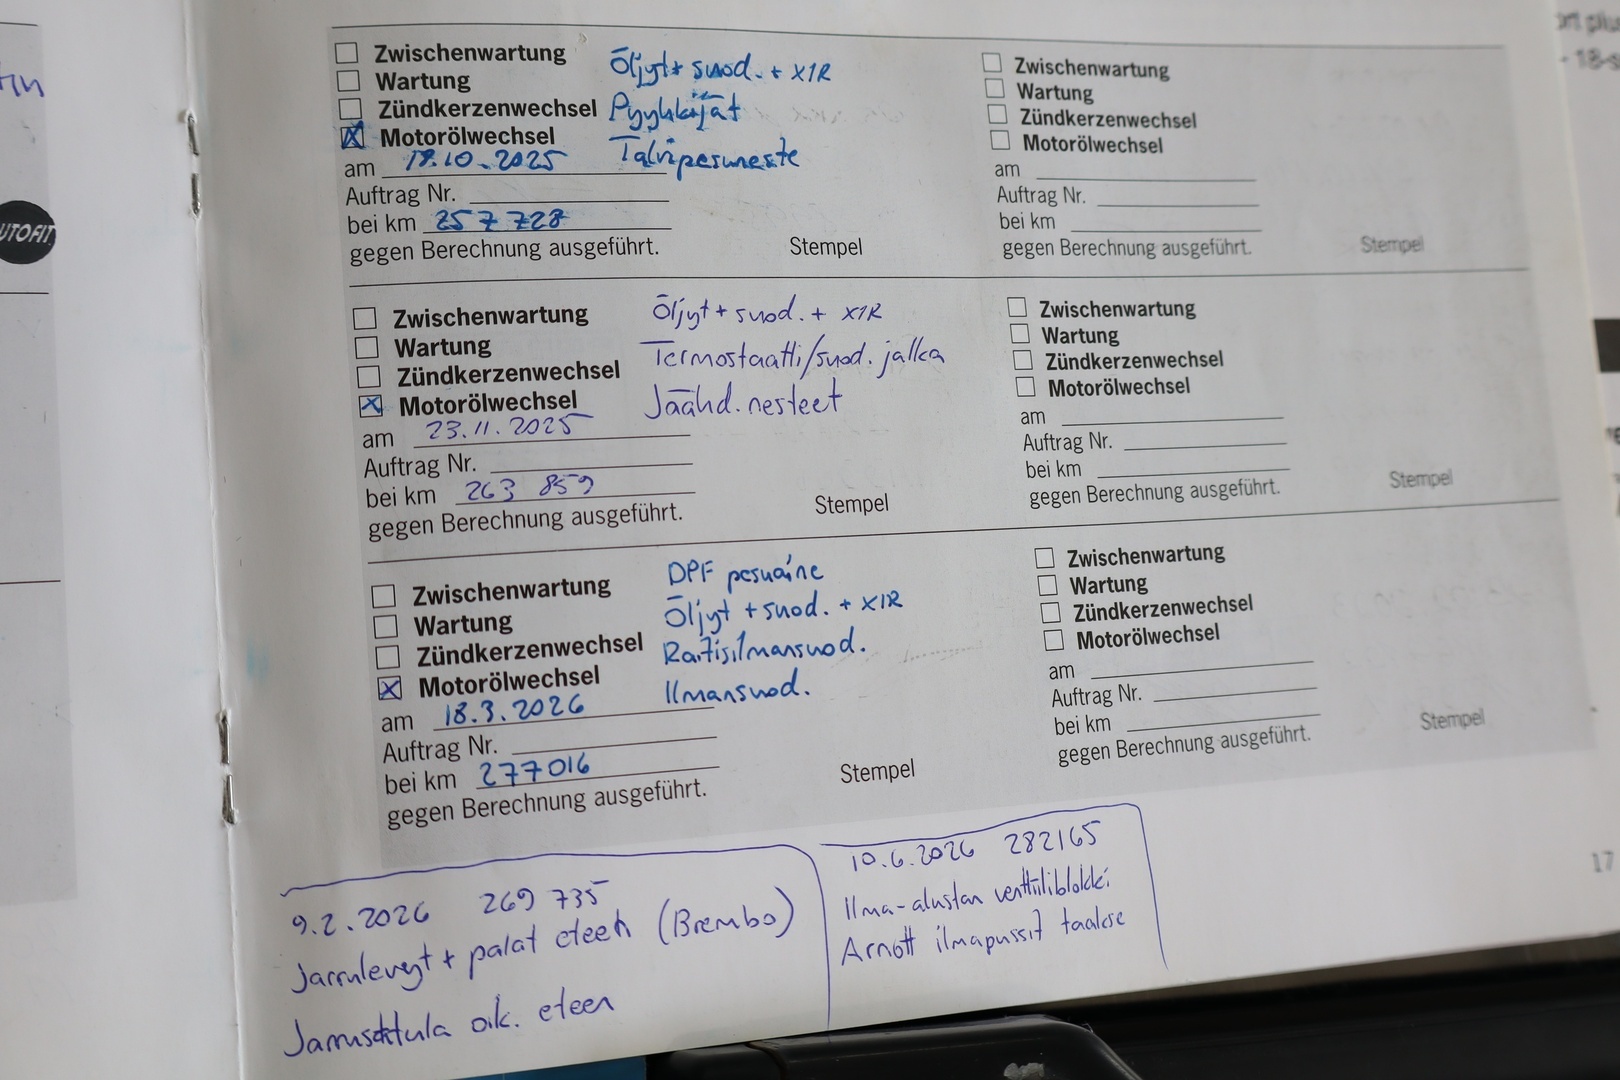 UTOFIT
Zwischenwartung
Wartung
Zündkerzenwechsel
Motorölwechsel
Öljyt + suod. + X1R
Pyyhkijät
Talvipesuneste
am 19.10.2025
Auftrag Nr.
bei km 257 728
gegen Berechnung ausgeführt.
Stempel
Zwischenwartung
Wartung
Zündkerzenwechsel
Motorölwechsel
Öljyt + suod. + X1R
Termostaatti/suod. jalka
Jäähd. nesteet
am 23.11.2025
Auftrag Nr.
bei km 263 859
gegen Berechnung ausgeführt.
Stempel
Zwischenwartung
Wartung
Zündkerzenwechsel
Motorölwechsel
DPF pesuaine
Öljyt + suod. + X1R
Raitisilmansuod.
Ilmansuod.
am 18.3.2026
Auftrag Nr.
bei km 277016
gegen Berechnung ausgeführt.
Stempel
9.2.2026 269 735
Jarrulevyt + palat eteen (Brembo)
Jarrusatula oik. eteen
10.6.2026 282165
Ilma-alustan venttiiliblokki
Arnott ilmapussit taakse
Zwischenwartung
Wartung
Zündkerzenwechsel
Motorölwechsel
am
Auftrag Nr.
bei km
gegen Berechnung ausgeführt.
Stempel
Zwischenwartung
Wartung
Zündkerzenwechsel
Motorölwechsel
am
Auftrag Nr.
bei km
gegen Berechnung ausgeführt.
Stempel
Zwischenwartung
Wartung
Zündkerzenwechsel
Motorölwechsel
am
Auftrag Nr.
bei km
gegen Berechnung ausgeführt.
Stempel
17